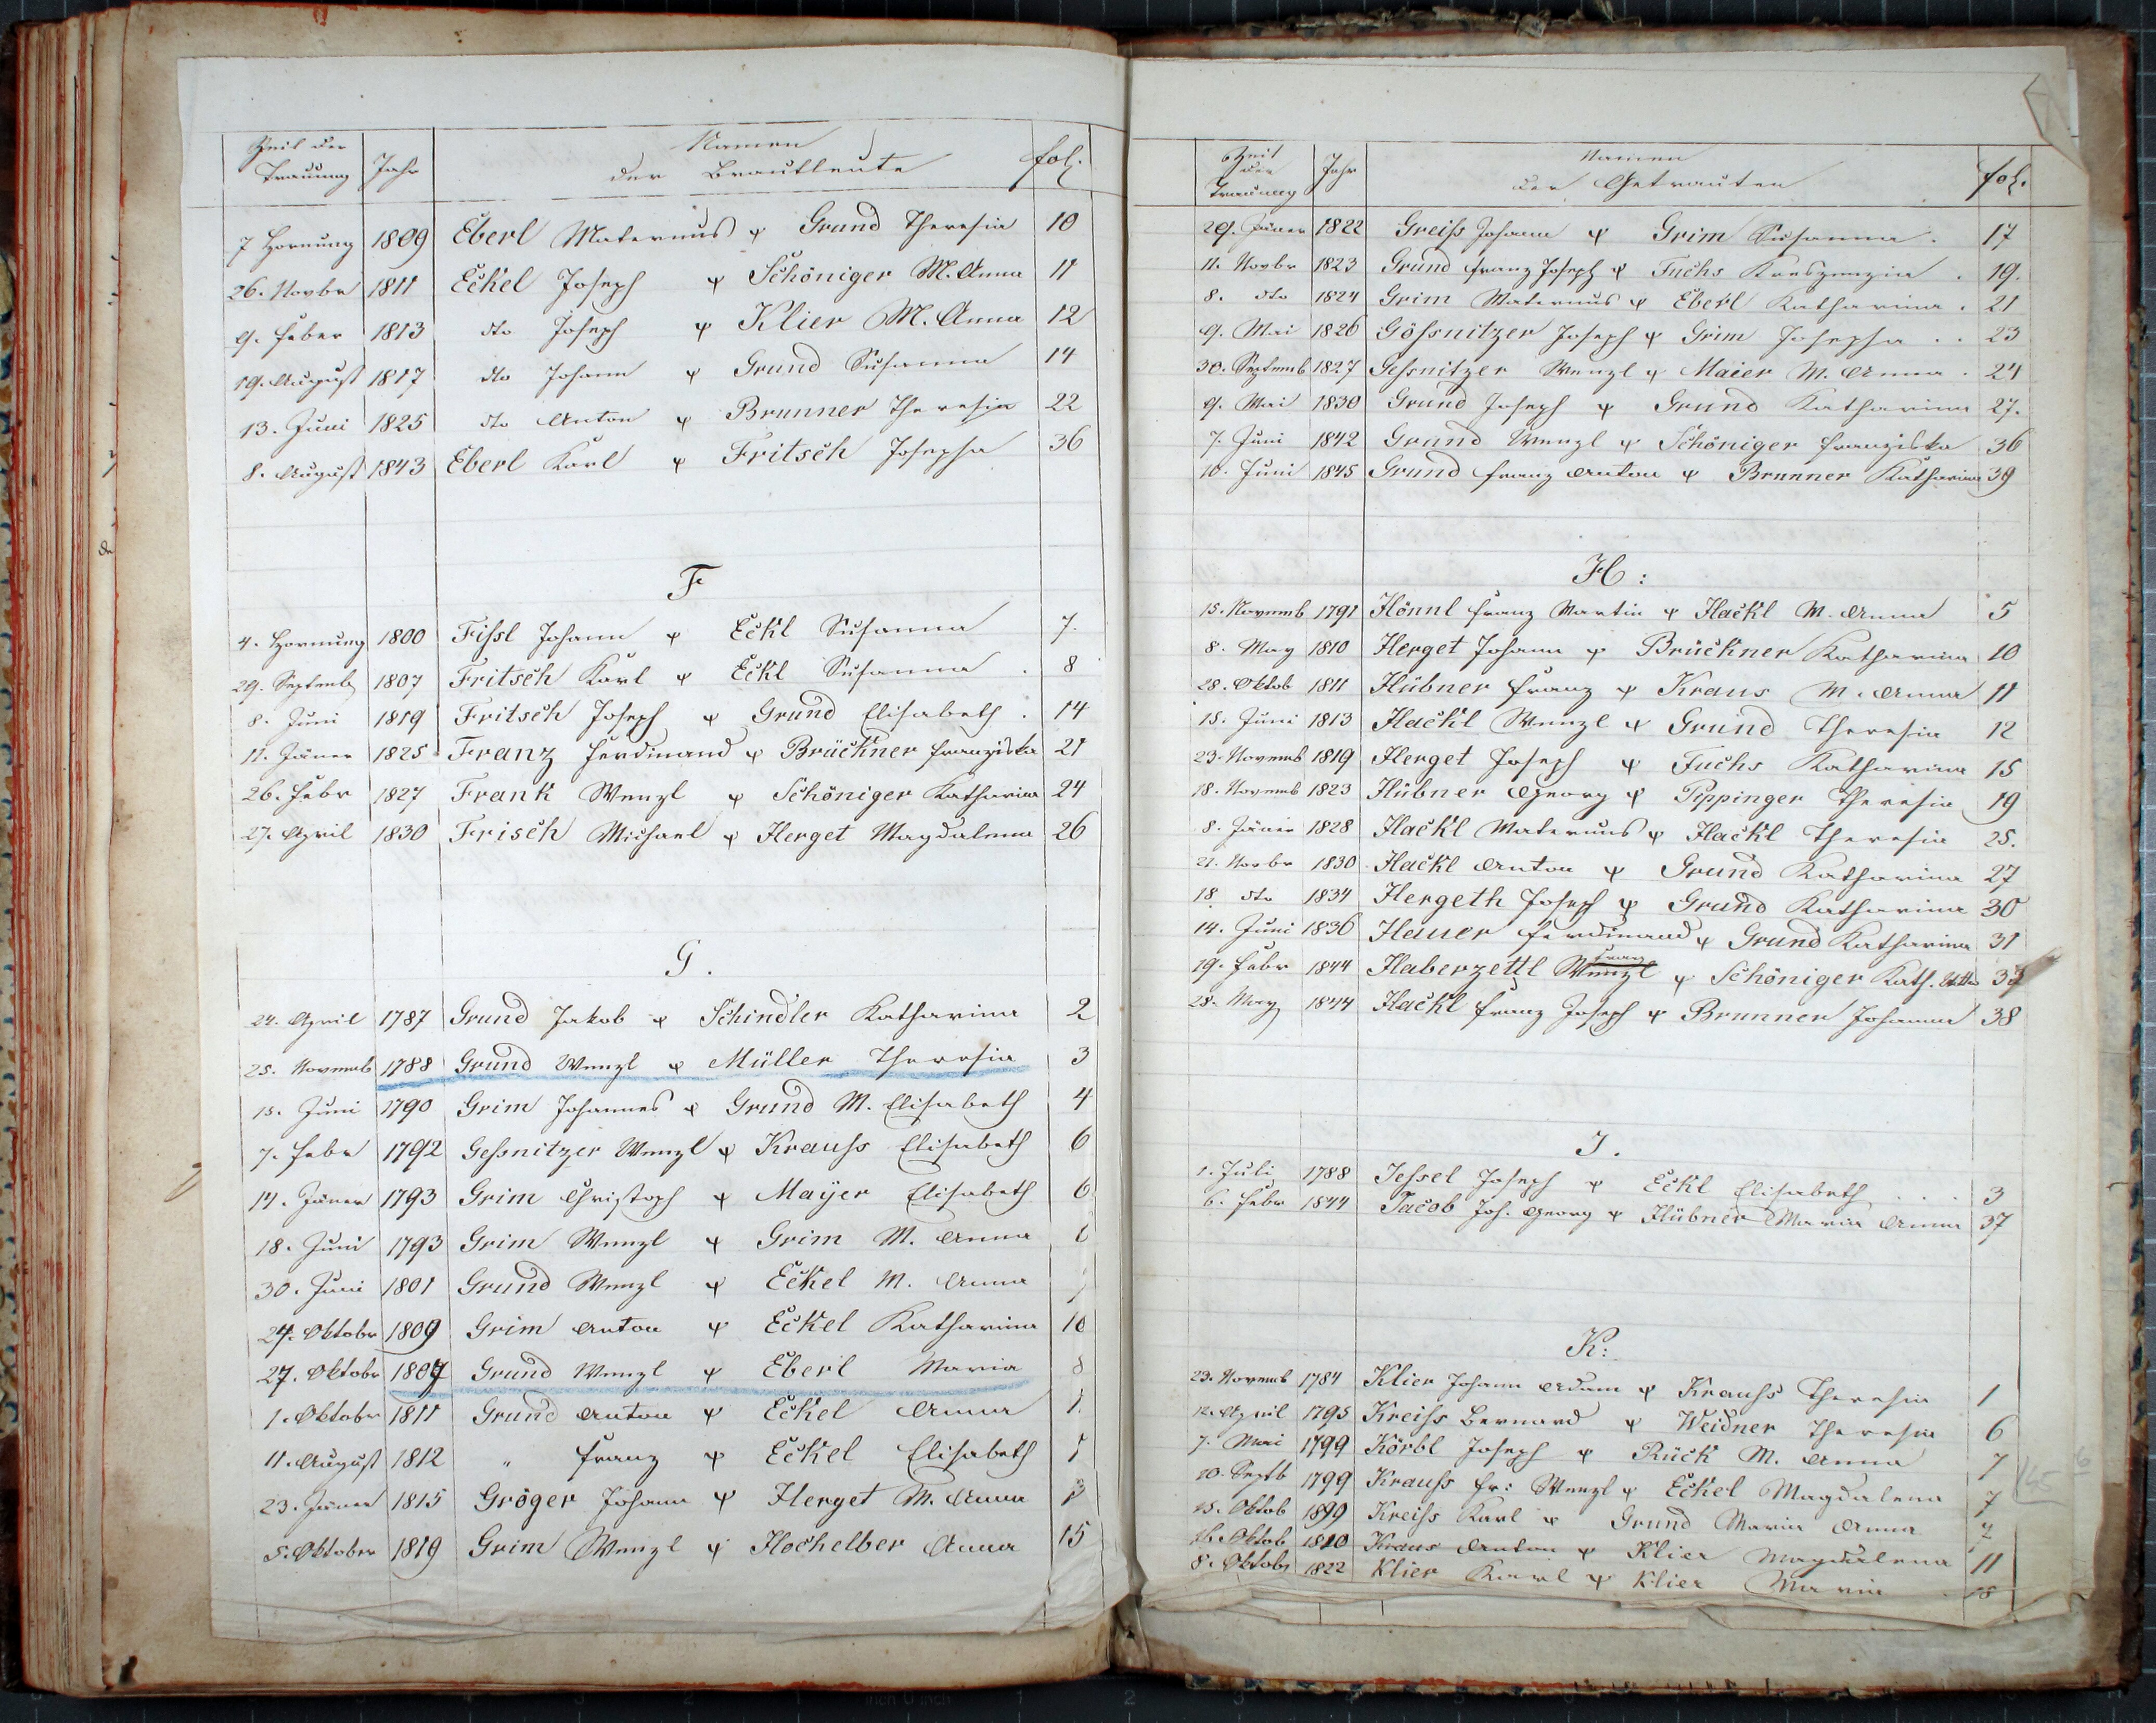 Zeit der Trauung Jahr Namen der Brautleute fol.
7 Hornung 1809 Eberl Maternus & Grund Theresia 10
26. Novbr 1811 Eckel Joseph & Schöniger M. Anna 11
9. Feber 1813 dto Joseph & Klier M. Anna 12
19. August 1817 dto Johann & Grund Susanna 14
13. Juni 1825 dto Anton & Brunner Theresia 22
8. August 1843 Eberl Karl & Fritsch Josepha 36
F
4. Hornung 1800 Fißl Johann & Eckl Susanna 7.
29. Septemb 1807 Fritsch Karl & Eckl Susanna . 8
8. Juni 1819 Fritsch Joseph & Grund Elisabeth . 14
11. Jäner 1825 Franz Ferdinand & Brückner Franziska 21
26. Febr 1827 Frank Wenzl & Schöniger Katharina 24
27. April 1830 Frisch Michael & Herget Magdalena 26
G.
24. April 1787 Grund Jakob & Schindler Katharina 2
25. Novemb 1788 Grund Wenzl & Müller Theresia 3
15. Juni 1790 Grim Johannes & Grund M. Elisabeth 4
7. Febr 1792 Geßnitzer Wenzl & Krauß Elisabeth 6
14. Jäner 1793 Grim Christoph & Mayer Elisabeth 6
18. Juni 1793 Grim Wenzl & Grim M. Anna 6
30. Juni 1801 Grund Wenzl & Eckel M. Anna
24. Oktober 1809 Grim Anton & Eckel Katharina 10
27. Oktobr 1807 Grund Wenzl & Eberl Maria 8
1. Oktobr 1811 Grund Anton & Eckel Anna
11. August 1812 " Franz & Eckel Elisabeth
23. Jäner 1815 Gröger Johann & Herget M. Anna
5. Oktober 1819 Grim Wenzl & Hochelber Anna 15
Zeit der Trauung Jahr Namen der Getrauten fol.
29. Jäner 1822 Greiß Johann & Grim Susanna . 17
11. Novbr 1823 Grund Franz Joseph & Fuchs Kreszenzia . 19.
8. dto 1824 Grim Maternus & Eberl Katharina . 21
9. Mai 1826 Gößnitzer Joseph & Grim Josepha . . 23
30. Septemb 1827 Geßnitzer Wenzl & Maier M. Anna . 24
9. Mai 1830 Grund Joseph & Grund Katharina 27.
7. Juni 1842 Grund Wenzl & Schöniger Franziska 36
10. Juni 1845 Grund Franz Anton & Brunner Katharina 39
H:
15. Novemb 1791 Hönnl Franz Martin & Hackl M. Anna 5
8. May 1810 Herget Johann & Brückner Katharina 10
28. Oktob 1811 Hübner Franz & Kraus M. Anna 11
15. Juni 1813 Hackl Wenzl & Grund Theresia 12
23. Novemb 1819 Herget Joseph & Fuchs Katharina 15
18. Novemb 1823 Hübner Georg & Pippinger Theresia 19
8. Jäner 1828 Hackl Maternus & Hackl Theresia 25.
21. Novbr 1830 Hackl Anton & Grund Katharina 27
18 dto 1834 Hergeth Joseph & Grund Katharina 30
14. Juni 1836 Hauer Ferdinand & Grund Katharina 31
19. Febr 1844 Haberzettl Wenzl Franz & Schöniger Kath. 37
28. May 1844 Hackl Franz Joseph & Brunner Johanna 38
J.
1. Juli 1788 Jeßel Joseph & Eckl Elisabeth . . . 3
6. Febr 1844 Jacob Joh. Georg & Hübner Maria Anna 37
K:
23. Novemb 1784 Klier Johann Adam & Krauß Theresia 1
12. April 1795 Kreiß Bernard & Weidner Theresia 6
7. Mai 1799 Körbl Joseph & Rück M. Anna 7
10. Septb 1799 Krauß Fr: Wenzl & Eckel Magdalena 7
15. Oktob 1899 Kreiß Karl & Grund Maria Anna 7
16. Oktob 1810 Kraus Anton & Klier Magdalena 11
8. Oktob 1822 Klier Karl & Klier Maria . 18